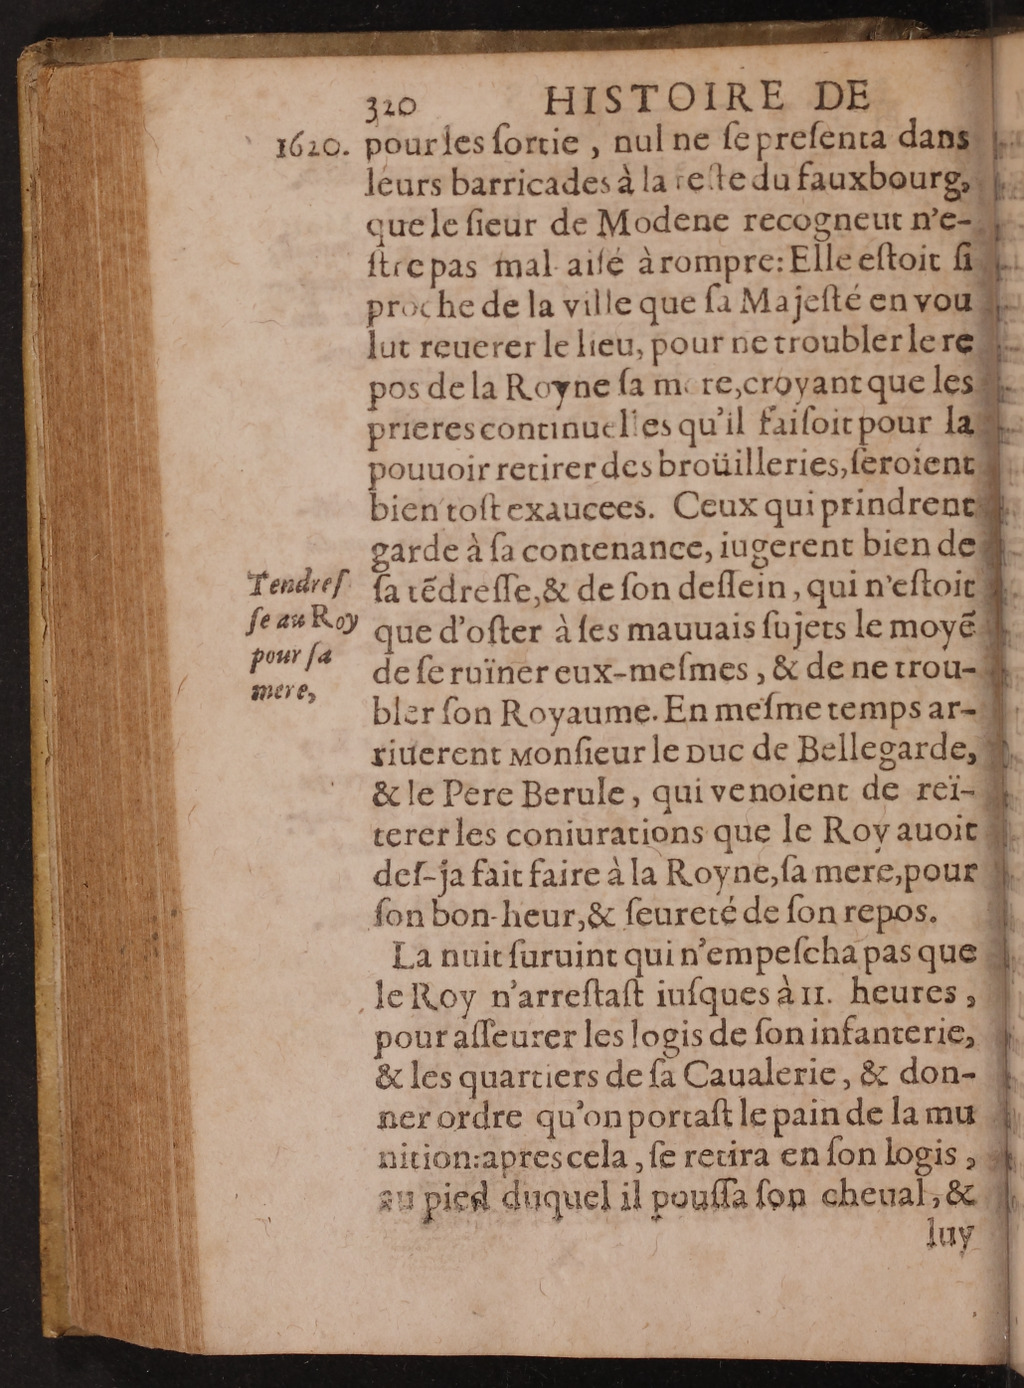 320 HISTOIRE DE
1620. pour les ſortie, nul ne ſe preſenta dans
leurs barricades à la teſte du fauxbourg,
que le ſieur de Modene recogneut n'e-
ſtre pas mal aiſé à rompre: Elle eſtoit ſi
proche de la ville que ſa Majeſté en vou
lut reuerer le lieu, pour ne troubler le re
pos de la Royne ſa mere, croyant que les
prieres continuelles qu'il faiſoit pour la
pouuoir retirer des broüilleries, ſeroient
bien toſt exaucees. Ceux qui prindrent
garde à ſa contenance, iugerent bien de
ſa tẽdreſſe, & de ſon deſſein, qui n'eſtoit
que d'oſter à ſes mauuais ſujets le moyẽ
de ſe ruïner eux-meſmes, & de ne trou-
bler ſon Royaume. En meſme temps ar-
riuerent Monſieur le Duc de Bellegarde,
& le Pere Berule, qui venoient de reï-
terer les coniurations que le Roy auoit
deſ-ja fait faire à la Royne, ſa mere, pour
ſon bon-heur, & ſeureté de ſon repos.
La nuit ſuruint qui n'empeſcha pas que
le Roy n'arreſtaſt iuſques à 11. heures,
pour aſſeurer les logis de ſon infanterie,
& les quartiers de ſa Caualerie, & don-
ner ordre qu'on portaſt le pain de la mu
nition: apres cela, ſe retira en ſon logis,
au pied duquel il pouſſa ſon cheual, &
luy
Tendreſ
ſe au Roy
pour ſa
mere,